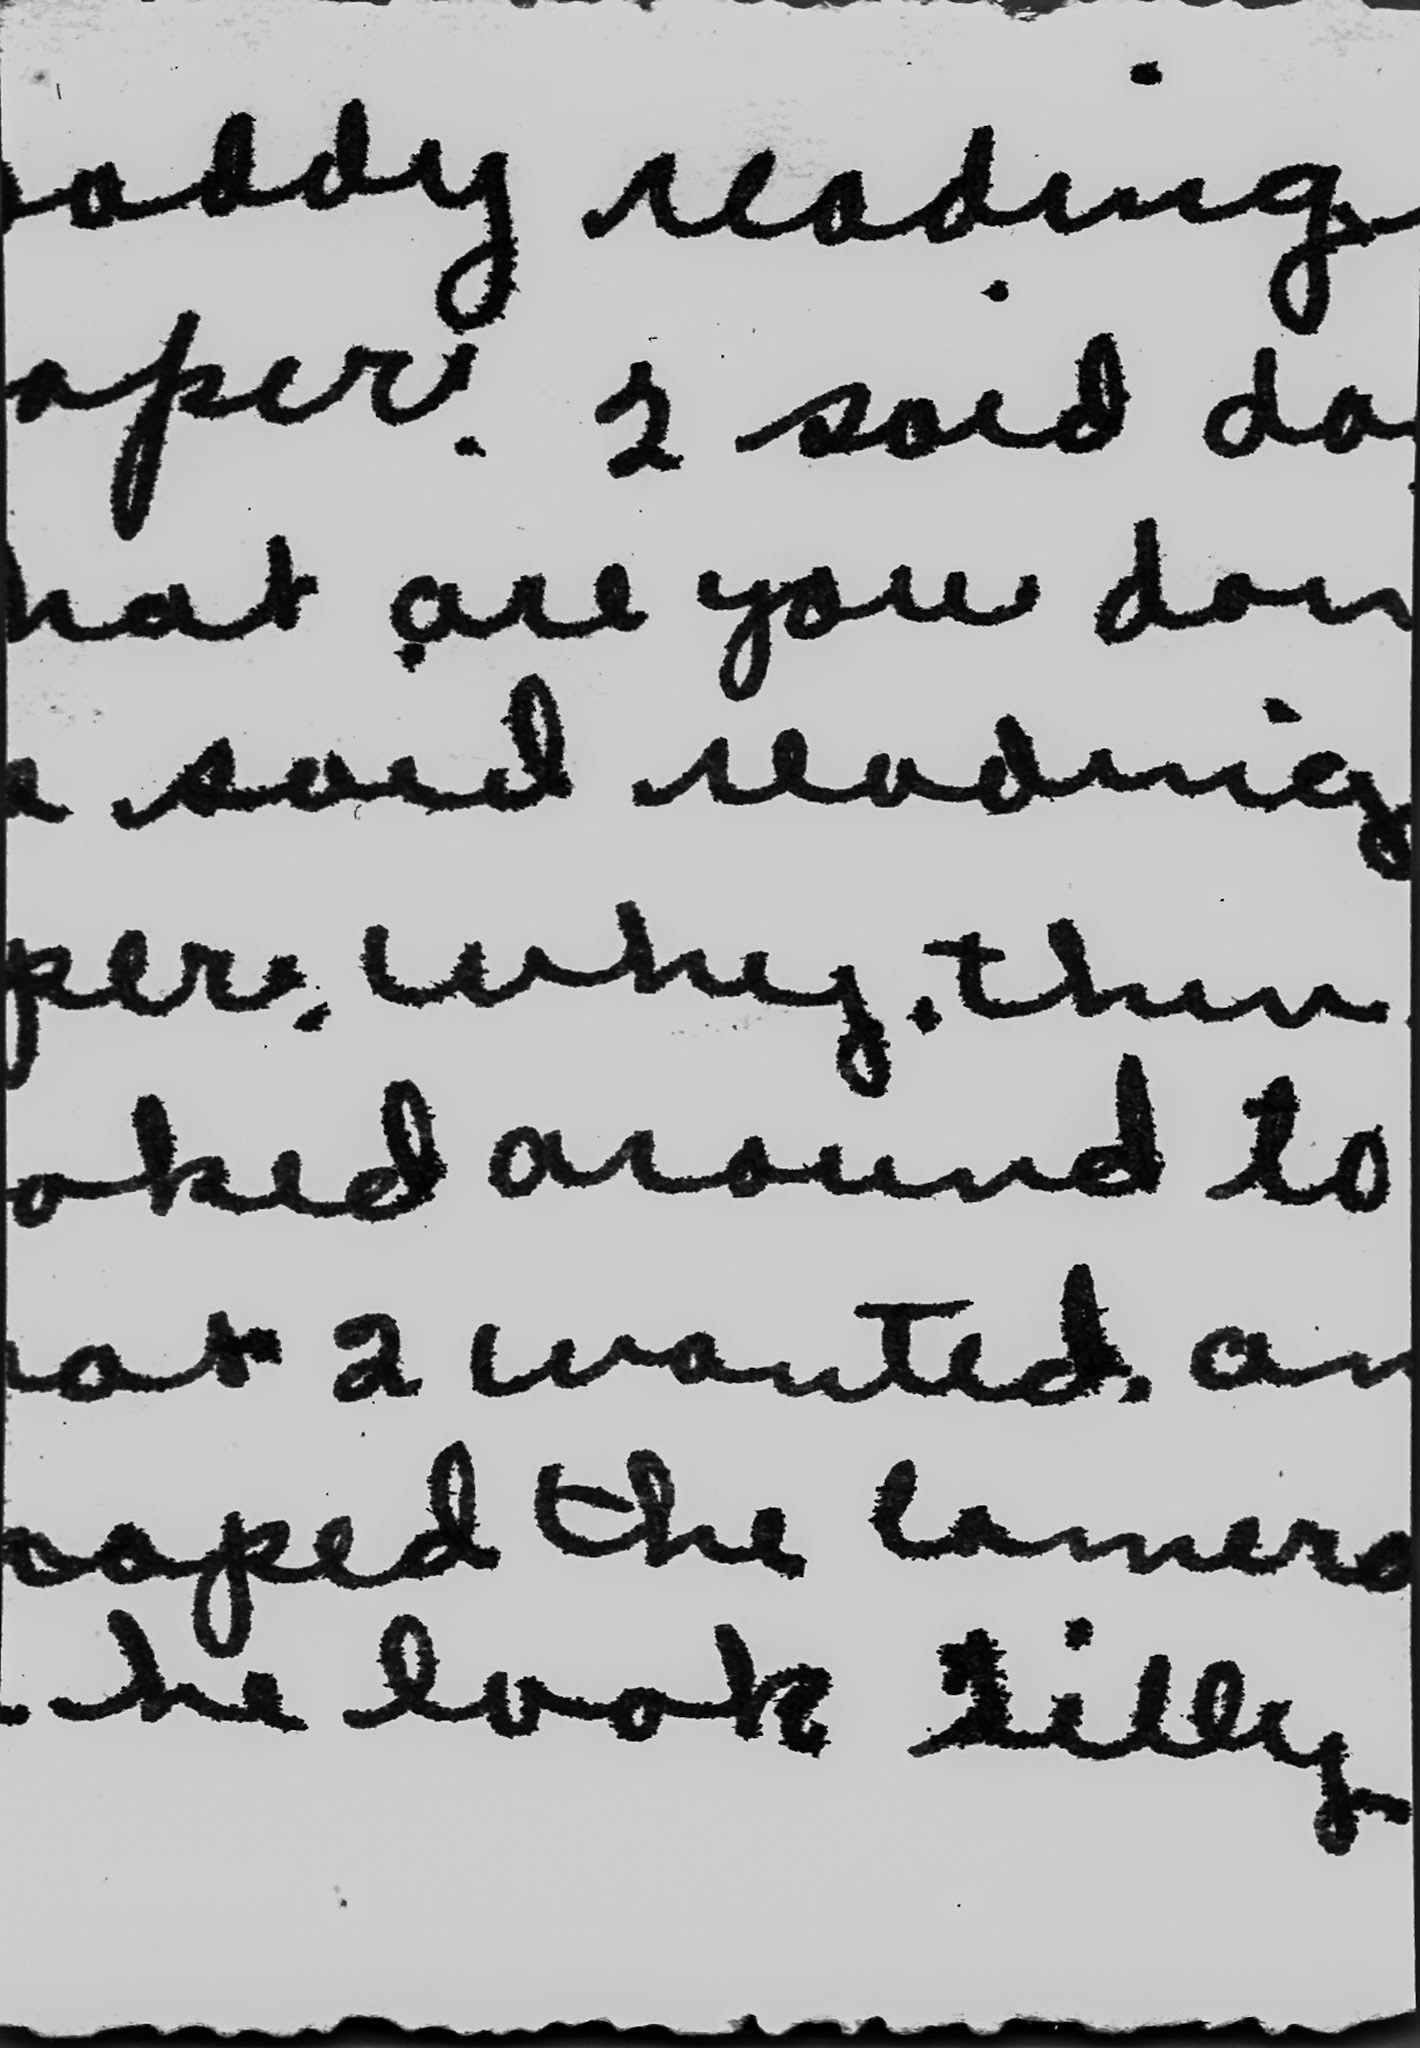 addy reading
aper. I said da
hat are you doin
e said reading
per. Why. then
oked around to
hat I wanted. an
naped the camera
he look silly